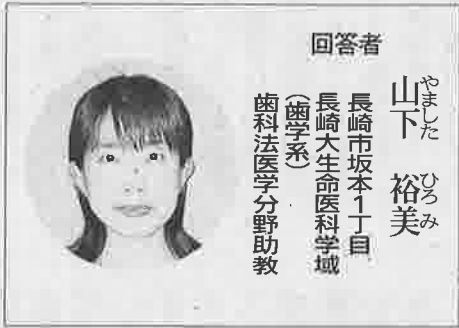 回答者
やました ひろみ
山下 裕美
長崎市坂本1丁目
長崎大生命医科学域
(歯学系)
歯科法医学分野助教